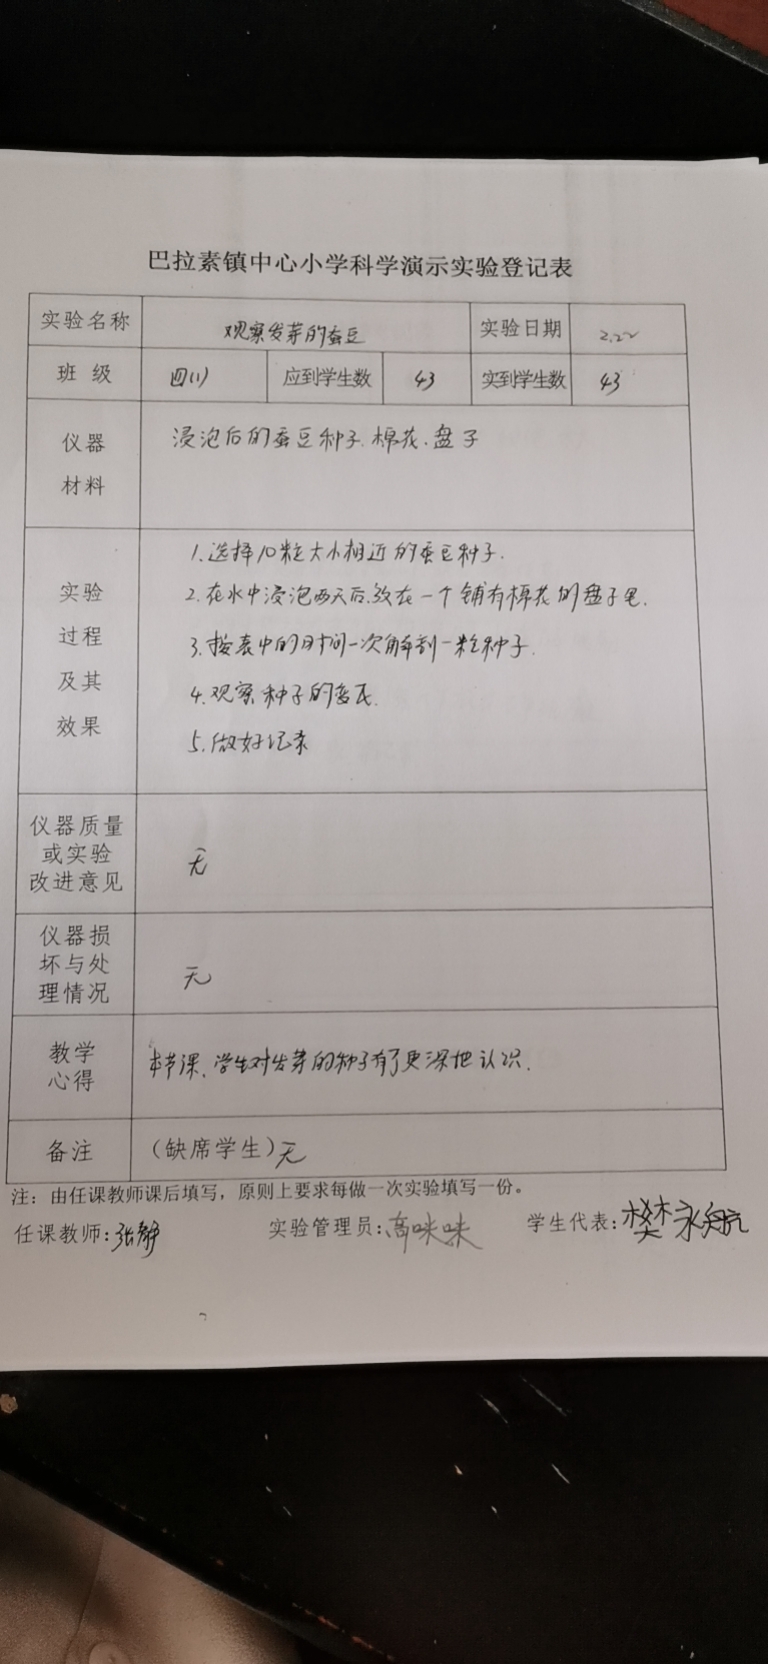 巴拉素镇中心小学科学演示实验登记表
实验名称 观察发芽的蚕豆 实验日期 2.22
班 级 四(1) 应到学生数 43 实到学生数 43
仪器
材料
浸泡后的蚕豆种子、棉花、盘子
实验
过程
及其
效果
1.选择10粒大小相近的蚕豆种子.
2.在水中浸泡两天后,放在一个铺有棉花的盘子里.
3.按表中的时间一次解剖一粒种子.
4.观察种子的变化.
5.做好记录
仪器质量
或实验
改进意见
无
仪器损
坏与处
理情况
无
教学
心得
本节课、学生对发芽的种子有了更深地认识.
备注 (缺席学生)无
注：由任课教师课后填写，原则上要求每做一次实验填写一份。
任课教师:张静 实验管理员:高咪咪 学生代表:樊永航